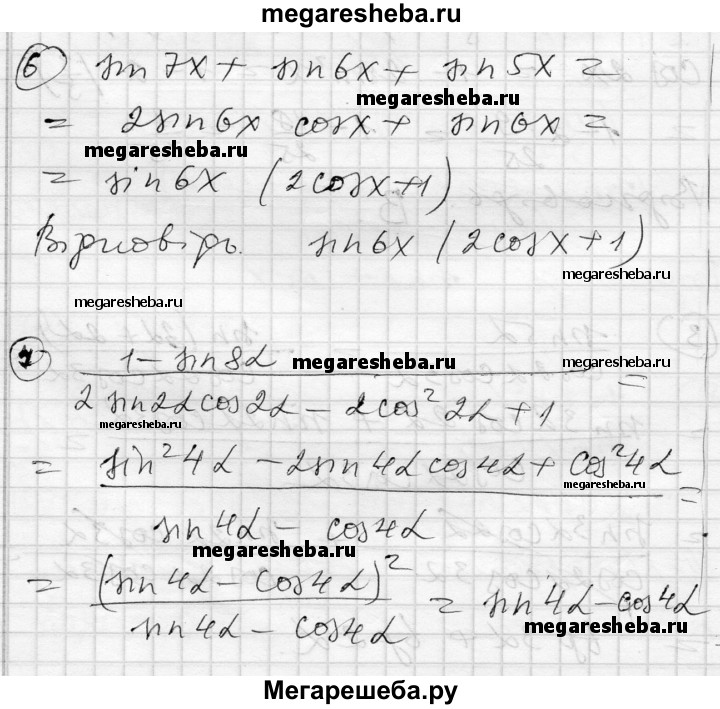 megaresheba.ru
6 sin 7x + sin 6x + sin 5x =
megaresheba.ru
= 2 sin 6x cos x + sin 6x =
megaresheba.ru
= sin 6x (2cos x + 1)
Відповідь. sin 6x (2cos x + 1)
megaresheba.ru
megaresheba.ru
7 1 - sin 8α
megaresheba.ru
megaresheba.ru
=
2 sin 2α cos 2α - 2cos² 2α + 1
megaresheba.ru
= sin² 4α - 2 sin 4α cos 4α + cos² 4α
megaresheba.ru
=
sin 4α - cos 4α
megaresheba.ru
= (sin 4α - cos 4α)² = sin 4α - cos 4α
sin 4α - cos 4α
megaresheba.ru
Мегарешеба.ру